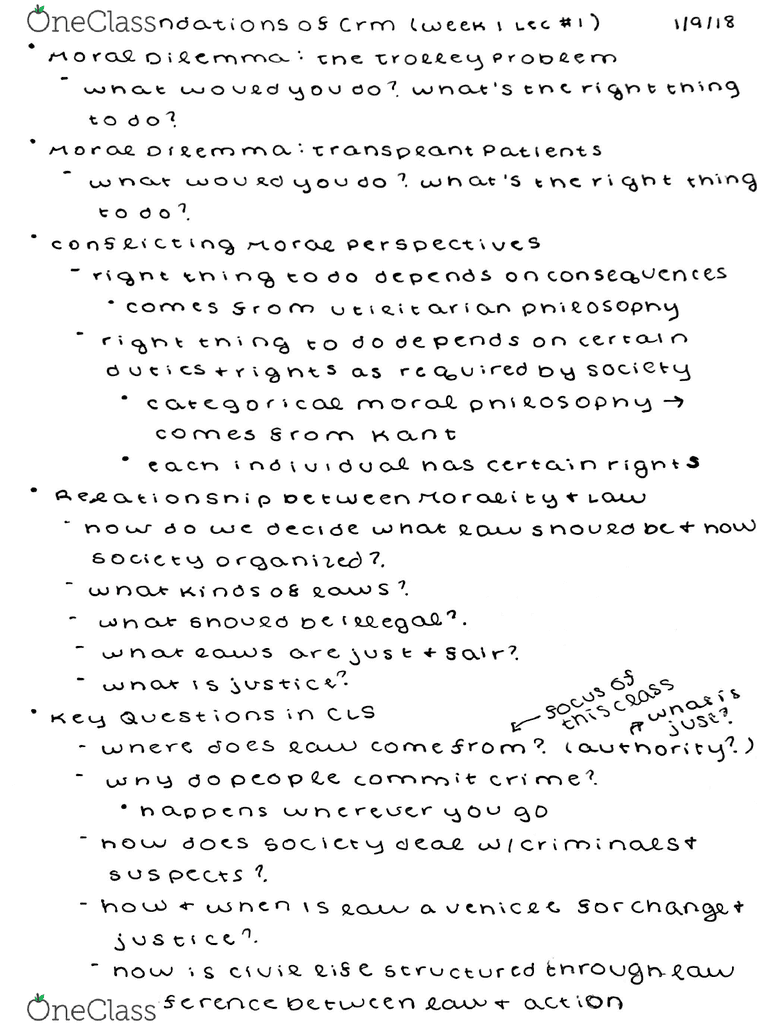 OneClass ndations of Crm (Week 1 Lec #1) 1/9/18
• Moral Dilemma: The Trolley Problem
- what would you do? what's the right thing
to do?
• Moral Dilemma: Transplant Patients
- what would you do? what's the right thing
to do?
• Conflicting Moral Perspectives
- right thing to do depends on consequences
• comes from utilitarian philosophy
- right thing to do depends on certain
duties + rights as required by society
• categorical moral philosophy →
comes from Kant
• each individual has certain rights
• Relationship between Morality + Law
- how do we decide what law should be + how
society organized?
- what kinds of laws?
- what should be illegal?
- what laws are just + fair?
- what is justice?
• Key Questions in CLS
← focus of
this class
what is
just?
- where does law come from? (authority?)
- why do people commit crime?
• happens wherever you go
- how does society deal w/ criminals +
suspects?
- how + when is law a vehicle for change +
justice?
- how is civil life structured through law
OneClass ference between law + action